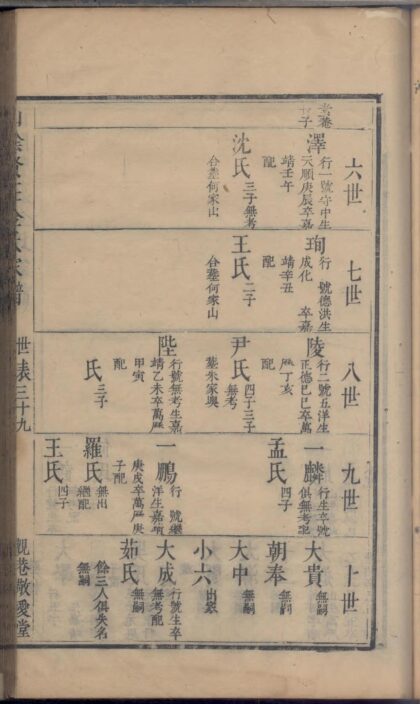 六世
澤
行一號守中生
天順庚辰卒嘉
靖壬午
配
沈氏
三子無考
合塟何家山
七世
珣
行 號德洪生
成化 卒嘉
靖辛丑
配
王氏
二子
合塟何家山
八世
陵
行二號五洋生
正德己巳卒萬
厯丁亥
配
尹氏
四子三子
無考
塟朱家奧
陛
行號無考生嘉
靖乙未卒萬厯
甲寅
配
氏
三子
九世
一麟
行生卒號
俱無考配
孟氏
四子
一鵬
行 號繼
洋生嘉靖
庚戌卒萬厯庚
子配
羅氏
無出
繼配
王氏
四子
十世
大貴
無嗣
朝奉
無嗣
大中
無嗣
小六
出家
大成
行號生卒
無考配
茹氏
無嗣
餘三人俱失名
無嗣
世表三十九
觀巷敬愛堂